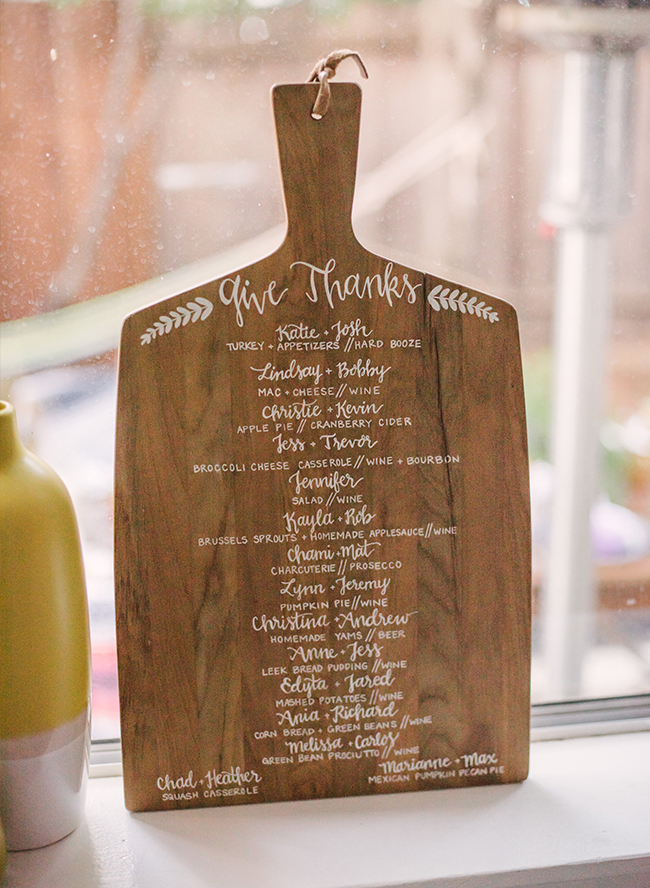 Give Thanks
Katie + Josh
TURKEY + APPETIZERS // HARD BOOZE
Lindsay + Bobby
MAC + CHEESE // WINE
Christie + Kevin
APPLE PIE // CRANBERRY CIDER
Jess + Trevor
BROCCOLI CHEESE CASSEROLE // WINE + BOURBON
Jennifer
SALAD // WINE
Kayla + Rob
BRUSSELS SPROUTS + HOMEMADE APPLESAUCE // WINE
Chami + Mat
CHARCUTERIE // PROSECCO
Lynn + Jeremy
PUMPKIN PIE // WINE
Christina + Andrew
HOMEMADE YAMS // BEER
Anne + Jess
LEEK BREAD PUDDING // WINE
Edyta + Jared
MASHED POTATOES // WINE
Ania + Richard
CORN BREAD + GREEN BEANS // WINE
Melissa + Carlos
GREEN BEAN PROCIUTTO // WINE
Marianne + Max
MEXICAN PUMPKIN PECAN PIE
Chad + Heather
SQUASH CASSEROLE